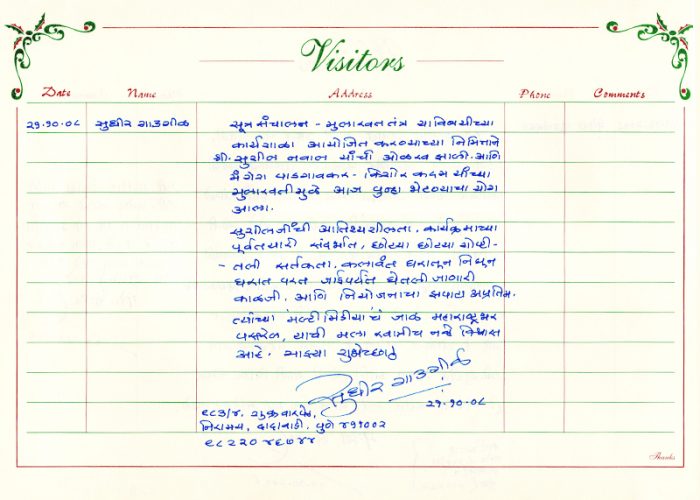 Visitors
Date Name Address Phone Comments
२९.१०.०८ सुधीर गाडगीळ सूत्रसंचालन - मुलाखततंत्र याविषयीच्या
कार्यशाळा आयोजित करण्याच्या निमित्ताने
श्री. सुशील नवाल यांची ओळख झाली. आणि
मंगेश पाडगावकर - किशोर कदम यांच्या
मुलाखतीमुळे आज पुन्हा भेटण्याचा योग
आला.
सुशीलजींची आतिथ्यशीलता, कार्यक्रमाच्या
पूर्वतयारी संदर्भात, छोट्या छोट्या गोष्टीं-
- तली सर्तकता, कलावंत घरातून निघून
घरात परत जाईपर्यंत घेतली जाणारी
काळजी, आणि नियोजनाचा झपाटा अप्रतिम.
त्यांच्या 'मल्टीमिडीया'चं जाळं महाराष्ट्रभर
पसरेल, याची मला खात्रीच नव्हे विश्वास
आहे. माझ्या शुभेच्छा!
सुधीर गाडगीळ
२९.१०.०८
९८३/४. शुक्रवारपेठ,
निरामय, दादावाडी. पुणे ४११००२
९८२२० ४६७४४
Thanks